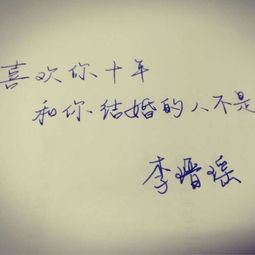 喜欢你十年
和你结婚的人不是
李晋瑶